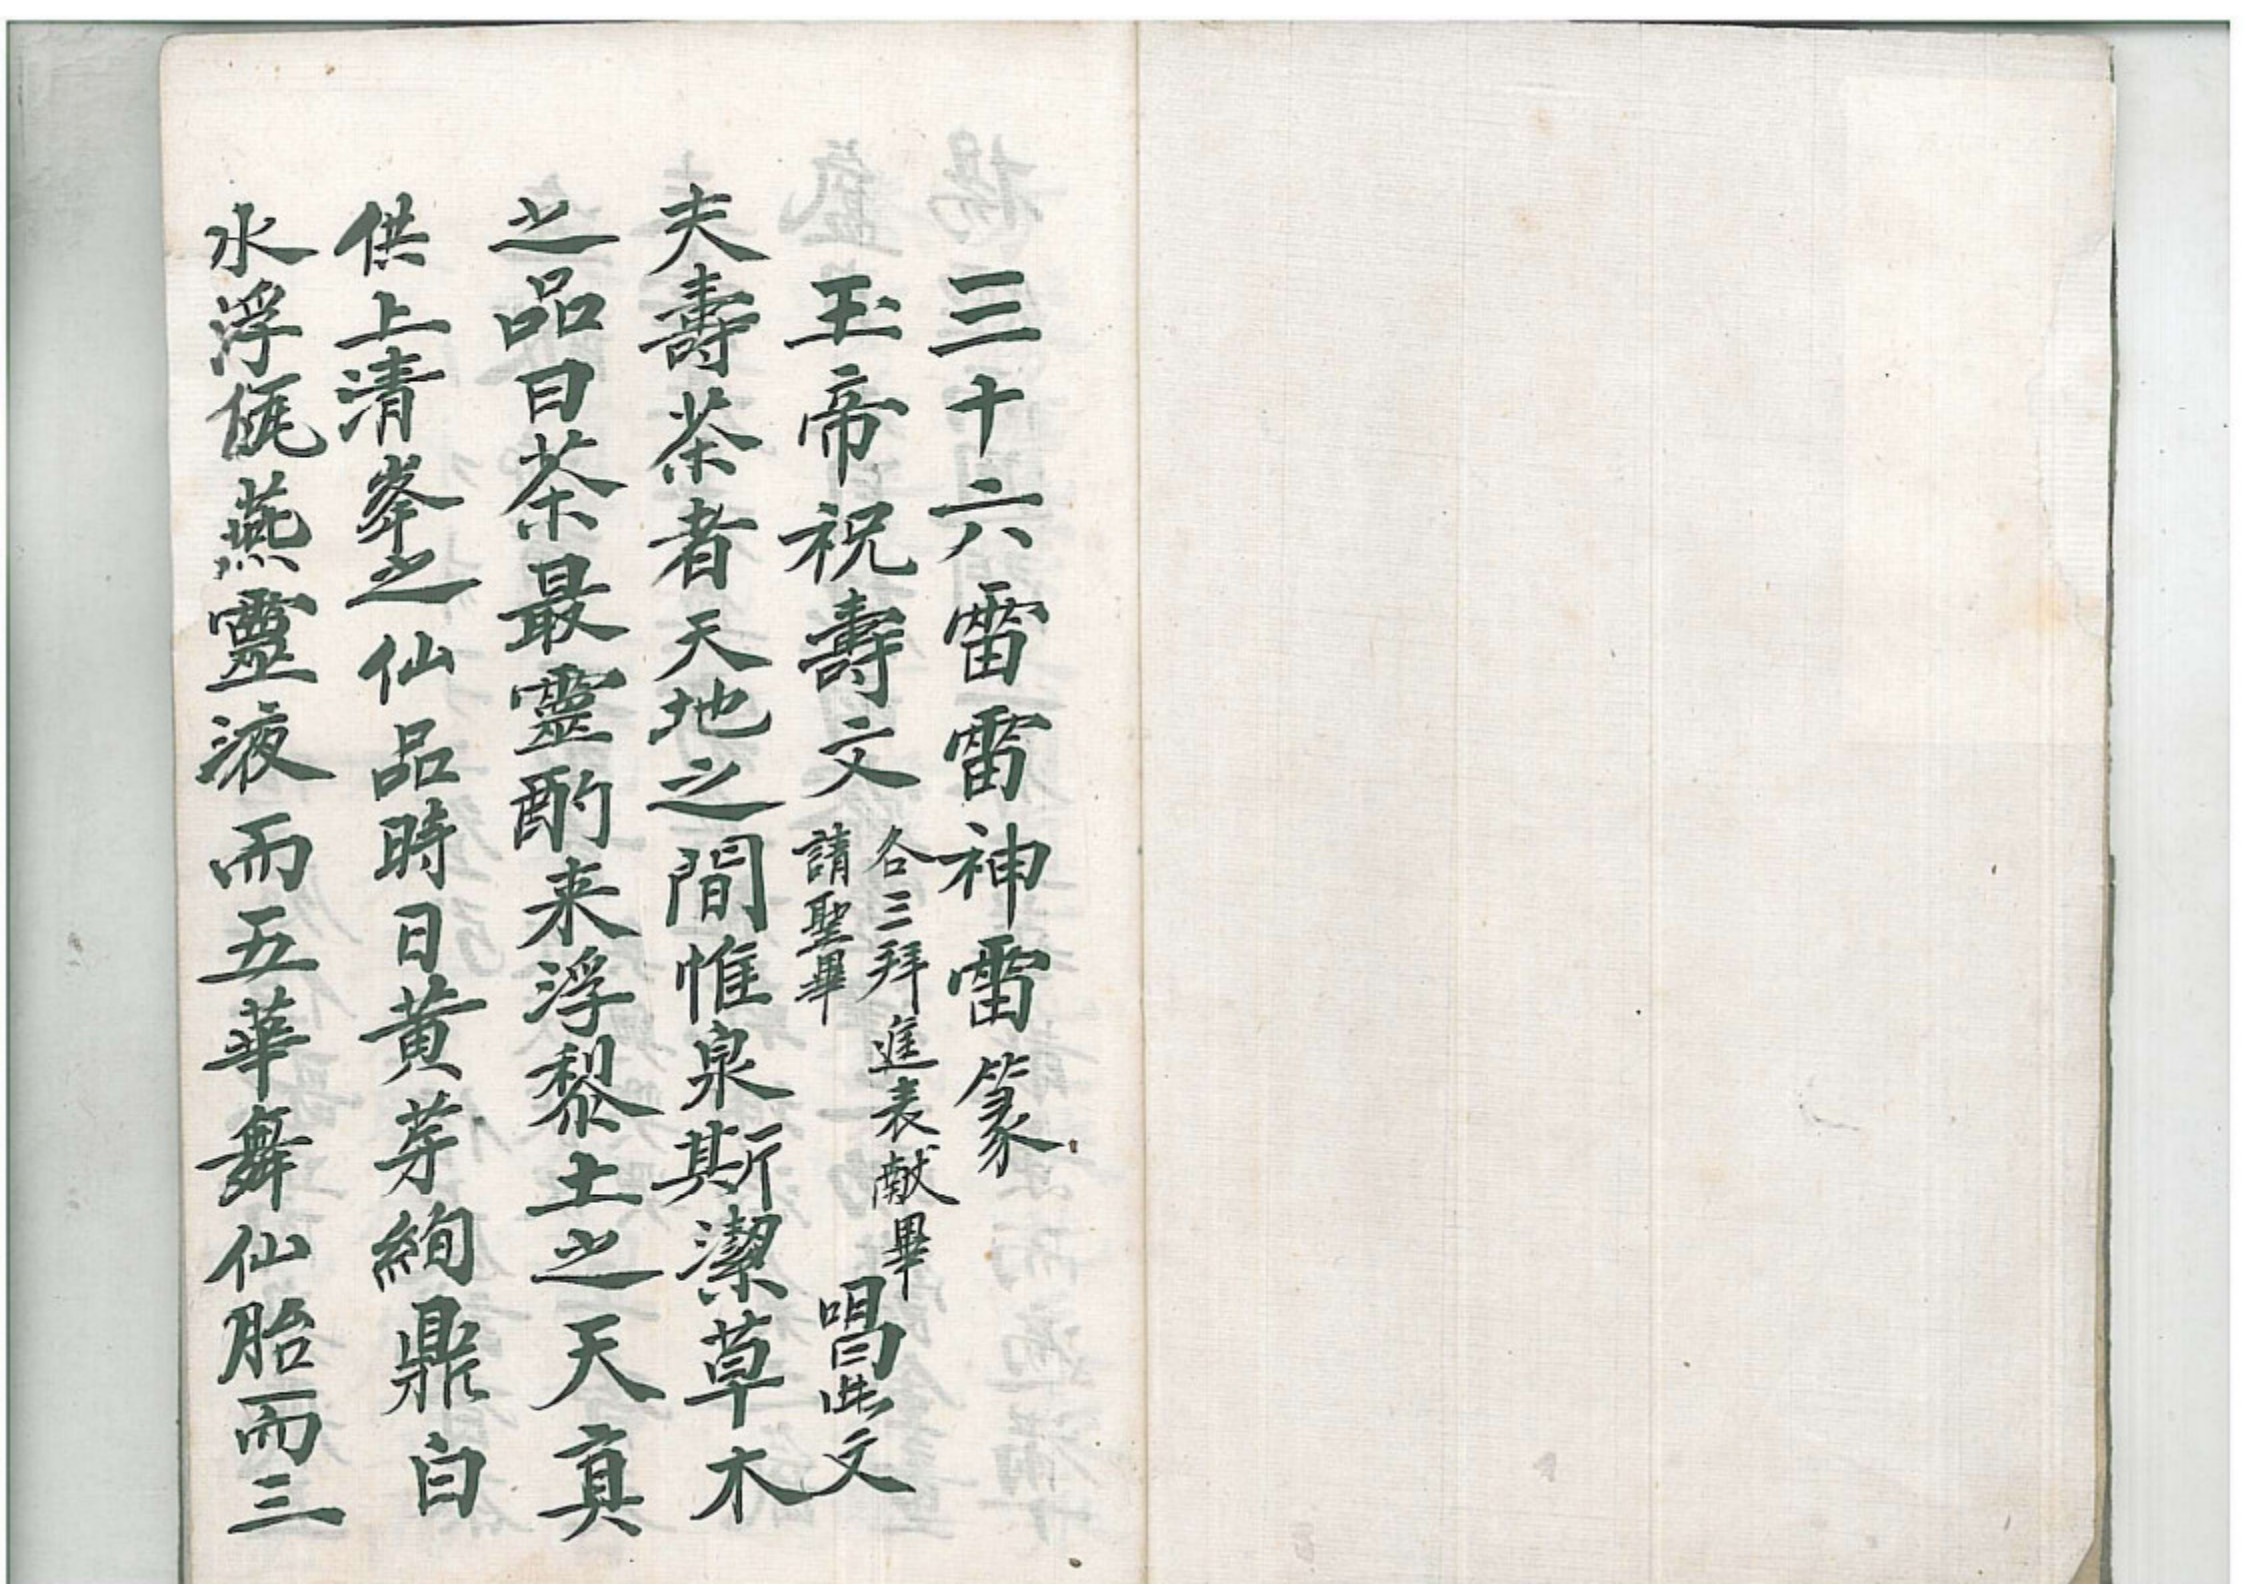 三十六雷雷神雷篆
玉帝祝壽文 各三拜進表献畢 請聖畢 唱此文
夫壽茶者天地之間惟泉斯潔草木
之品曰茶最靈酌来浮黎土之天真
供上清峯之仙品時日黄芽絢鼎白
水浮甌燕靈液而五華舞仙胎而三